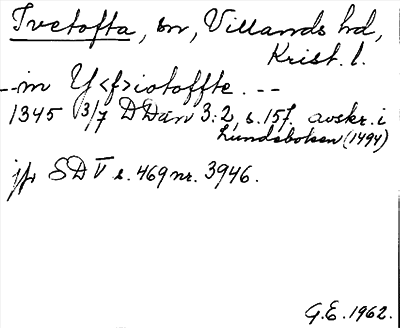 Tvetofta, sn, Villands hd,
Krist. l.
-- in Y<f>iotoffte. --
1345 3/7 DDan 3:2, s. 157. avskr. i
Lundsboken (1494)
jfr SD V s. 469 nr. 3946.
G.E. 1962.